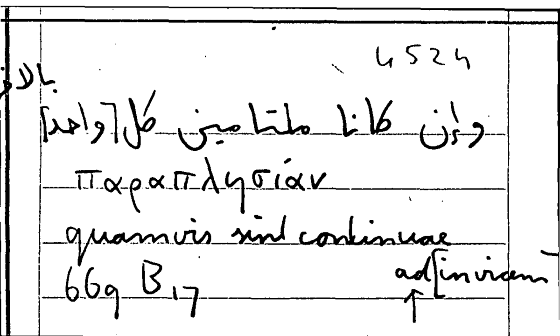 4524
وإن كانا ملتامين كل [واحد]
παραπλησίαν
quamvis sint continuae
ad [invicem
669 B 17